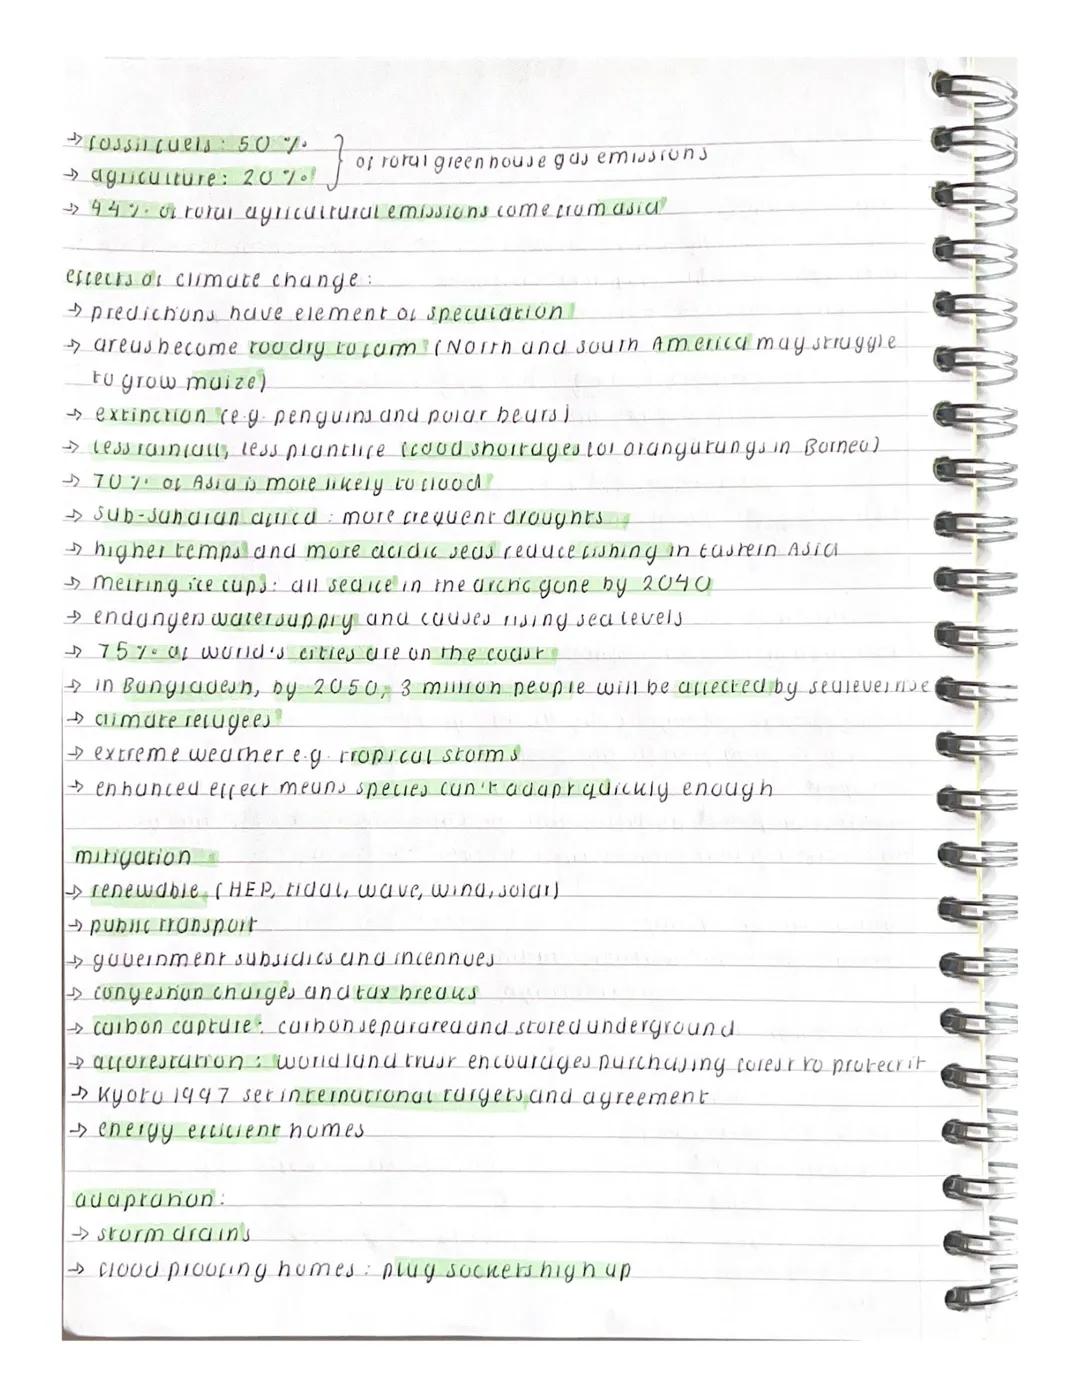 → fossil fuels: 50% } of total greenhouse gas emissions
→ agriculture: 20%
→ 44% of total agricultural emissions come from asia
effects of climate change:
→ predictions have element of speculation
→ areas become too dry to farm (North and south America may struggle
to grow maize)
→ extinction (e.g. penguins and polar bears)
→ less rainfall, less plantlife (food shortages for orangutungs in Borneo)
→ 70% of Asia is more likely to flood
→ sub-saharan africa: more frequent droughts
→ higher temps and more acidic seas reduce fishing in Eastern Asia
→ melting ice caps: all sea ice in the arctic gone by 2040
→ endangers water supply and causes rising sea levels
→ 75% of world's cities are on the coast
→ in Bangladesh, by 2050, 3 million people will be affected by sealevel rise
→ climate refugees
→ extreme weather e.g. tropical storms
→ enhanced effect means species can't adapt quickly enough
mitigation
→ renewable (HEP, tidal, wave, wind, solar)
→ public transport
→ government subsidies and incentives
→ congestion charges and tax breaks
→ carbon capture: carbon separated and stored underground
→ afforestation: world land trust encourages purchasing forest to protect it
→ Kyoto 1997 set international targets and agreement
→ energy efficient homes
adaptation:
→ storm drains
→ flood proofing homes: plug sockets high up